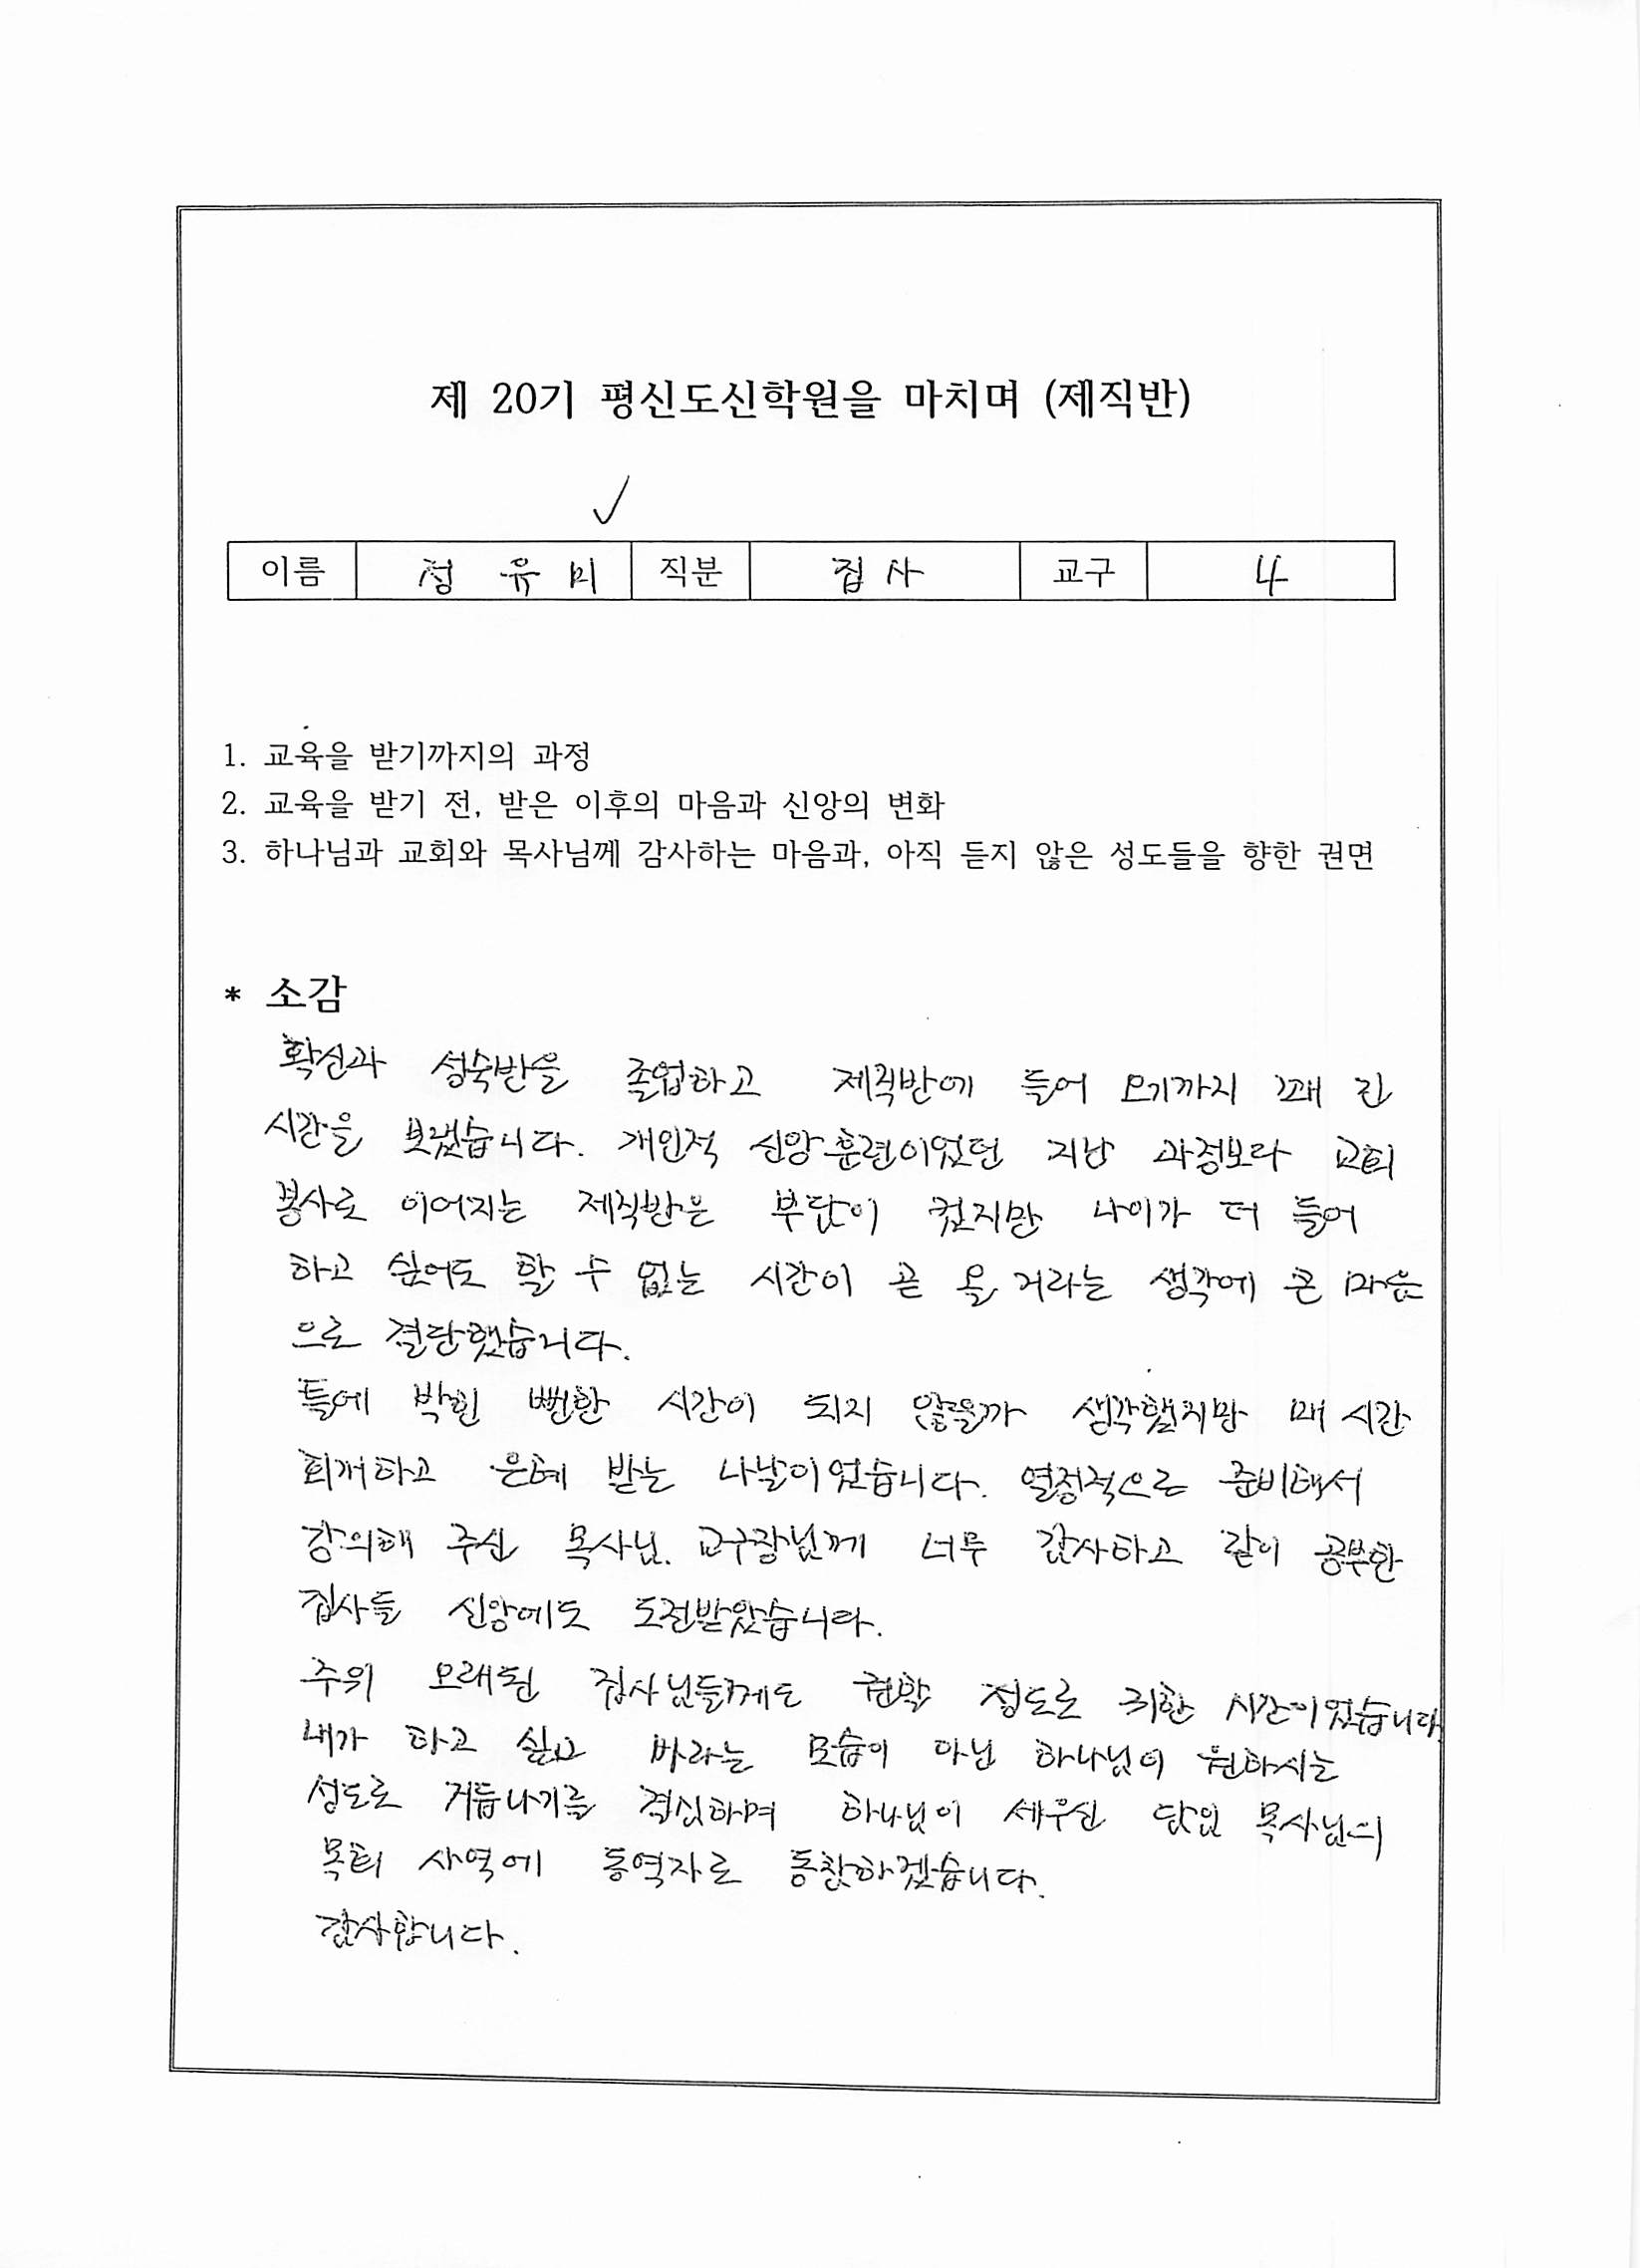 제 20기 평신도신학원을 마치며 (제직반)
이름 정유미 직분 집사 교구 4
1. 교육을 받기까지의 과정
2. 교육을 받기 전, 받은 이후의 마음과 신앙의 변화
3. 하나님과 교회와 목사님께 감사하는 마음과, 아직 듣지 않은 성도들을 향한 권면
* 소감
확신과 성숙반을 졸업하고 제직반에 들어 오기까지 꽤 긴
시간을 보냈습니다. 개인적 신앙훈련이었던 지난 과정보다 교회
봉사로 이어지는 제직반은 부담이 컸지만 나이가 더 들어
하고 싶어도 할 수 없는 시간이 곧 올 거라는 생각에 큰 마음
으로 결단했습니다.
틀에 박힌 뻔한 시간이 되지 않을까 생각했지만 매 시간
회개하고 은혜 받는 나날이었습니다. 열정적으로 준비해서
강의해 주신 목사님. 교구장님께 너무 감사하고 같이 공부한
집사들 신앙에도 도전받았습니다.
주위 오래된 집사님들께도 권할 정도로 귀한 시간이었습니다.
내가 하고 싶고 바라는 모습이 아닌 하나님이 원하시는
성도로 거듭나기를 결심하며 하나님이 세우신 담임 목사님의
목회 사역에 동역자로 동참하겠습니다.
감사합니다.